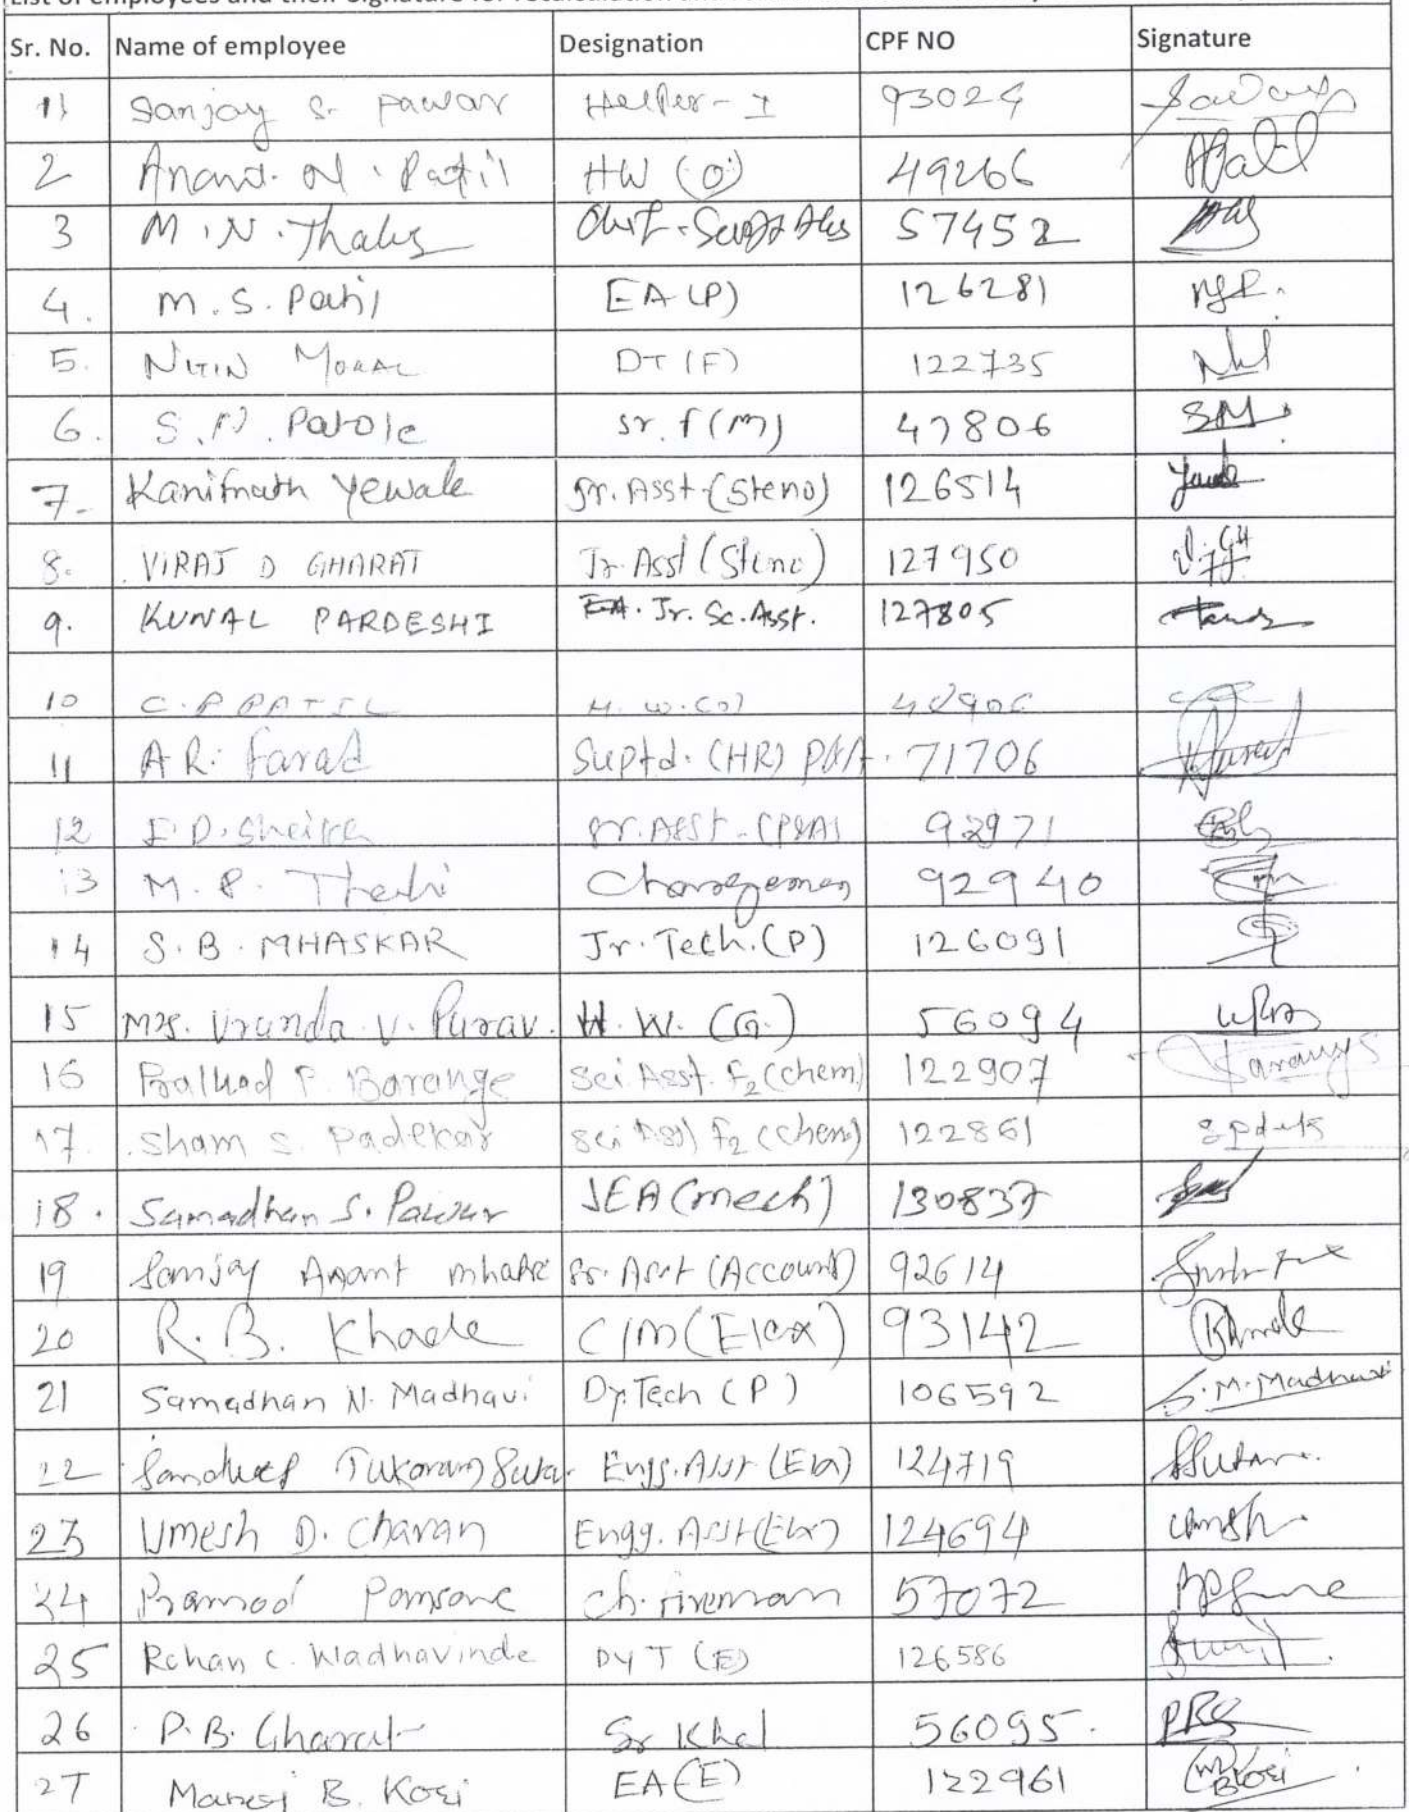 List of employees and their signature for recalculation and
Sr. No. Name of employee Designation CPF NO Signature
1) Sanjay S. Pawar Helper-I 93024
2 Anand. N. Patil HW (O) 49266 APatil
3 M.N. Thaley 57452
4. M.S. Patil EA (P) 126281
5. NITIN MOKAL DT (F) 122735
6. S.N. Patole Sr. f (m) 47806
7. Kanifnath Yewale Jr. Asst (Steno) 126514
8. VIRAJ D GHARAT Jr. Asst (Steno) 127950
9. KUNAL PARDESHI Jr. Sc. Asst. 127805
10 C.P PATIL H.W.(O) 48906
11 A R. Farad Suptd. (HR) P&A. 71706
12 Sheikh Sr. Asst - (P&A) 92971
13 M.P. Chargeman 92940
14 S.B. MHASKAR Jr. Tech. (P) 126091
15 Mrs. Vrunda V. Purav. H.W. (G.) 56094
16 Pralhad P. Barange Sci Asst. F2 (chem) 122907
17. Sham S. Padekar Sci Asst F2 (chem) 122861
18. Samadhan S. Pawar JEA (mech) 130837
19 Sanjay Anant mhatre Sr. Asst (Account) 92614
20 R.B. Khade C/M (Elex) 93142
21 Samadhan N. Madhavi Dy. Tech (P) 106592 S.M. Madhavi
22 Sandeep Tukaram Sutar Engg. Asst (Elx) 124719 SSutar
23 Umesh D. Chavan Engg. Asst (Elx) 124694 Umesh
24 Pramod Pansare Ch. fireman 57072
25 Rohan C. Wadhavinde Dy T (E) 126586
26 P.B. Gharat Sr Khal 56095.
27 Manoj B. Kori EA (E) 122961